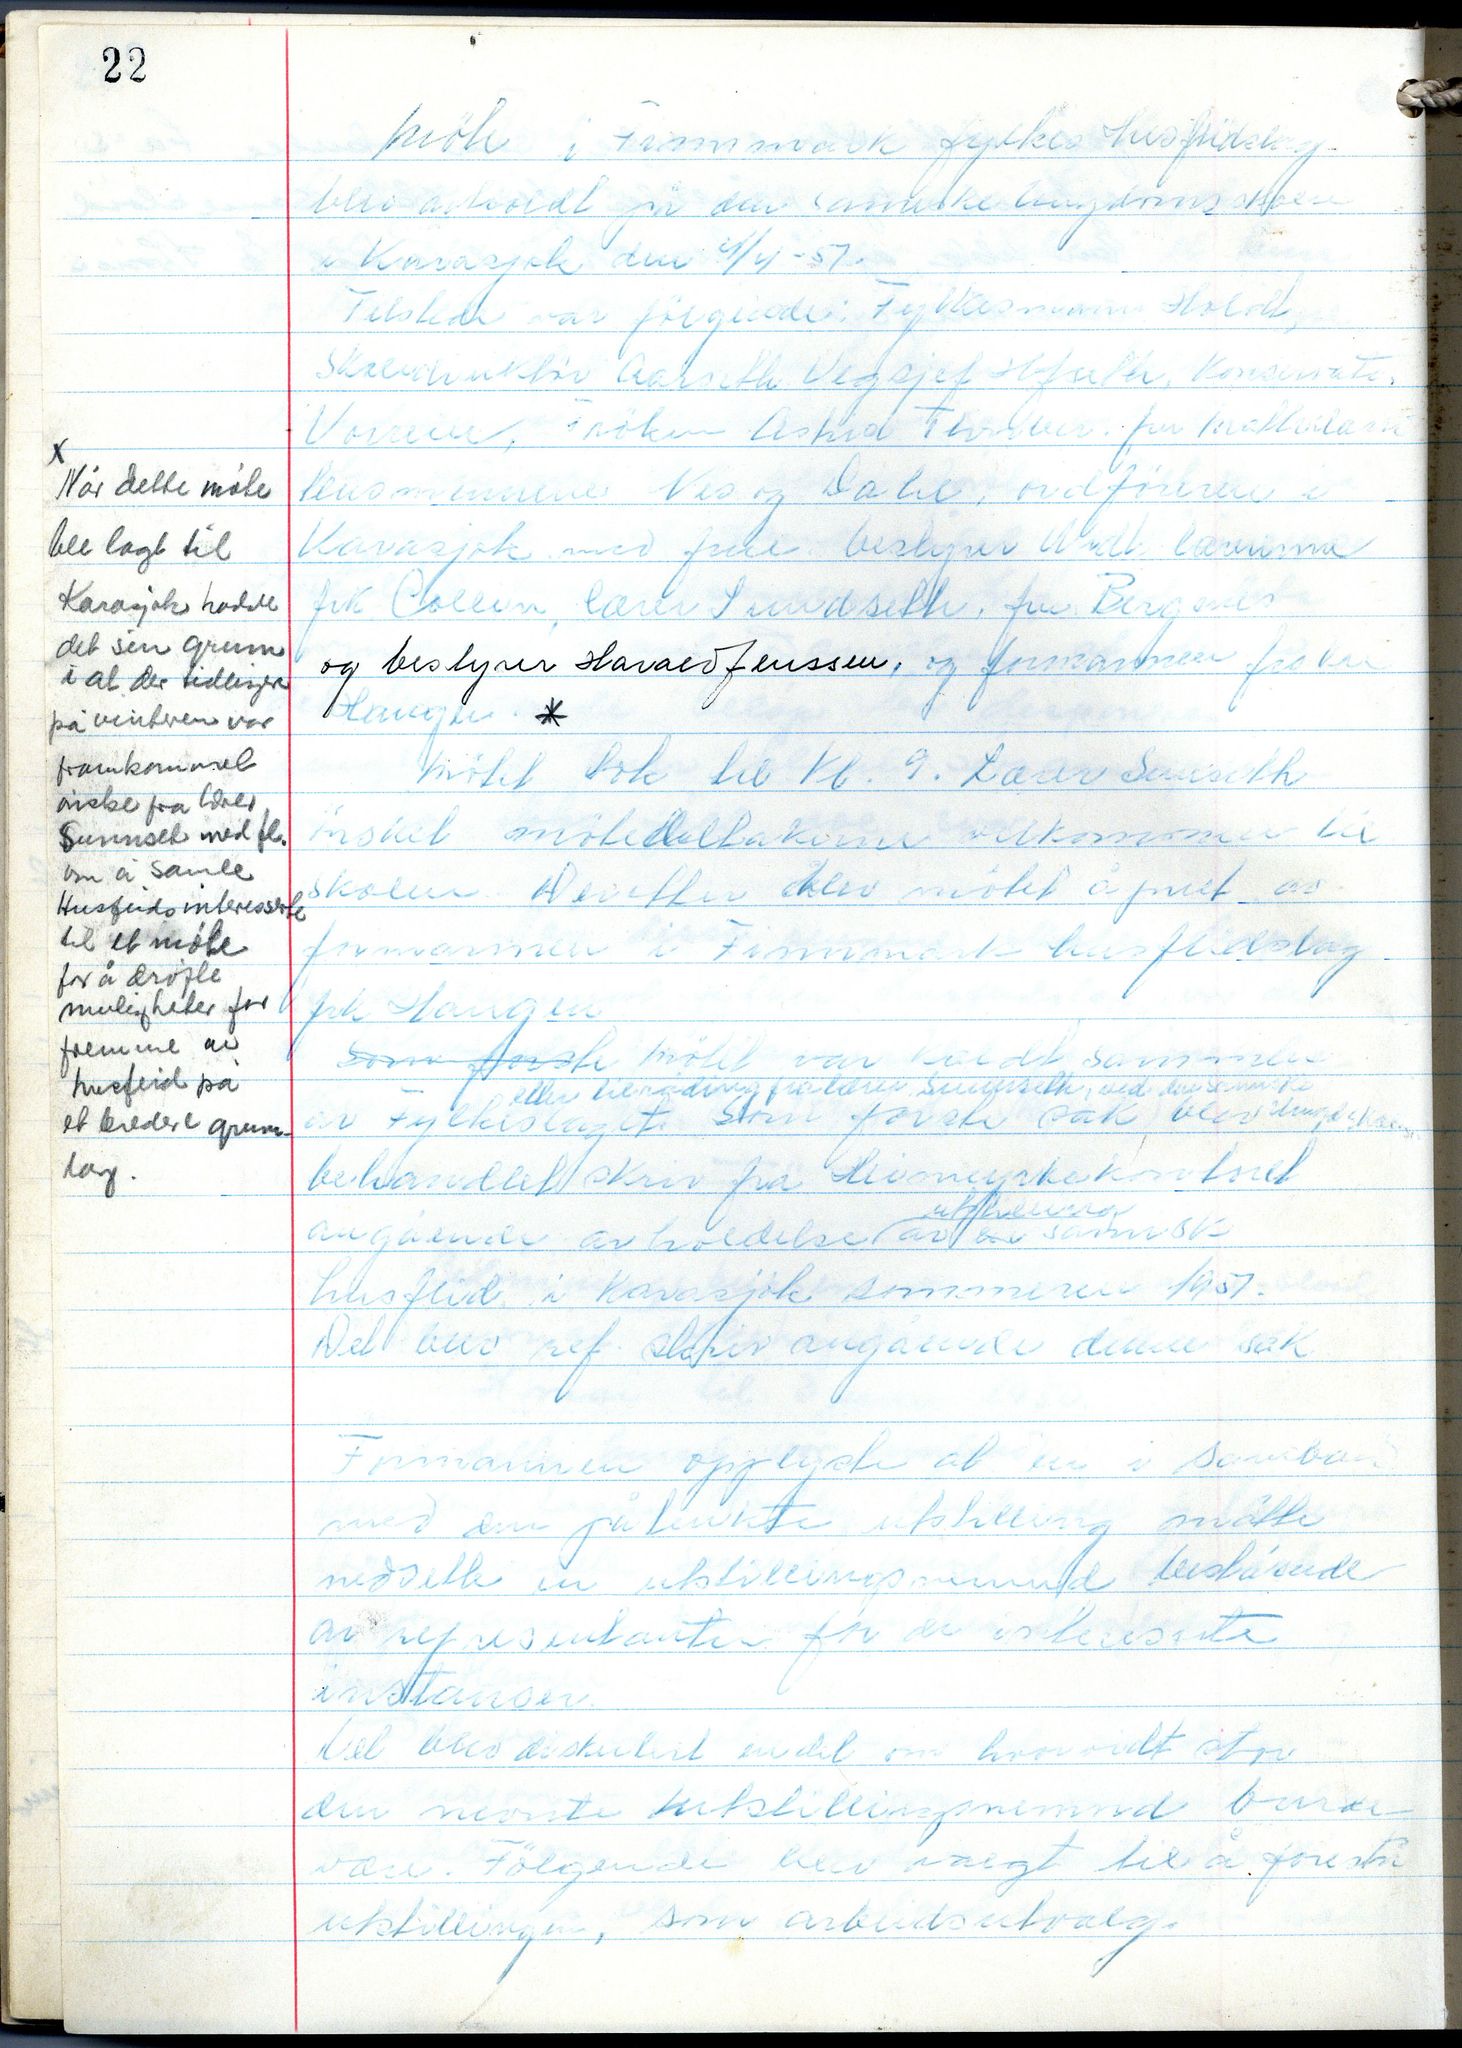 22
Möte i Finnmark fylkes Husflidslag
blev avholdt på den samiske ungdomsskolen
i Karasjok den 4/4-51.
Tilstede var følgende: Fylkesmann Holdt,
Skoledirektør Aarseth Vegsjef Hfseth, Konservator
Vorren, Frøken Astrid fru
lensmennene Nes og Dahl, ordføreren i
Karasjok med frue bestyrer lærerinne
frk Collin, lærer Sundseth, fru Bergnes
og bestyrer Harald Jenssen, og formannen frøken
Haugen *
Møtet tok til kl. 9. Lærer Sunseth
ønsket møtedeltakerne velkommen til
skolen. Deretter blev møtet åpnet av
formannen i Finnmark husflidslag
frk Haugen
Som første Møtet var kaldt sammen
etter tilråding fra lærer Sunnseth, ved den samiske
av Fylkeslaget. Som første sak blev ungd.skolen
behandlet skriv fra Heimeyrkekontoret
utstilling
angående avholdelse av en samisk
husflid i Karasjok sommeren 1951.
Det blev ref. skriv angående denne sak
Formannen opplyste at en i samband
med den påtenkte utstilling måtte
nedsette en utstillingsnemnd bestående
av representanter for de interesserte
instanser.
Det blev diskutert endel om hvorvidt stor
den nevnte utstillingsnemnd burde
være. Følgende blev valgt til å forestå
utstillingen, som arbeidsutvalg.
x
Når dette møte
ble lagt til
Karasjok hadde
det sin grunn
i at der tidligere
på vinteren var
framkommet
ønske fra lærer
Sunnset med fl.
om å samle
Husflidsinteresserte
til et møte
for å drøfte
muligheter for
fremme av
husflid på
et bredere grunn-
lag.